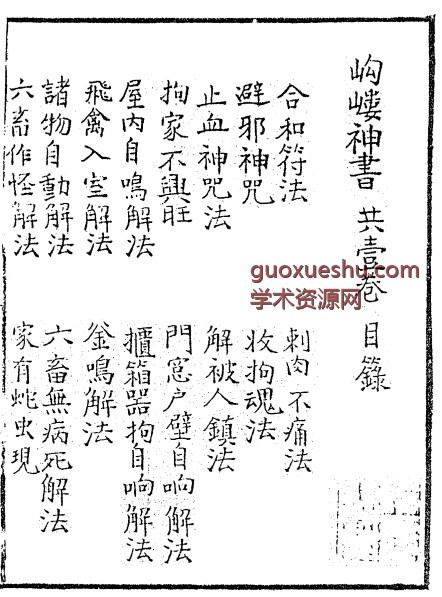 岣嶁神書 共壹卷 目錄
合和符法 刺肉不痛法
避邪神咒 收拘魂法
止血神咒法 解被人鎮法
拘家不興旺 門窓户壁自响解法
屋内自鳴解法 櫃箱器拘自响解法
飛禽入室解法 釜鳴解法
諸物自動解法 六畜無病死解法
六畜作怪解法 家有蛇虫現
guoxueshu.com
学术资源网